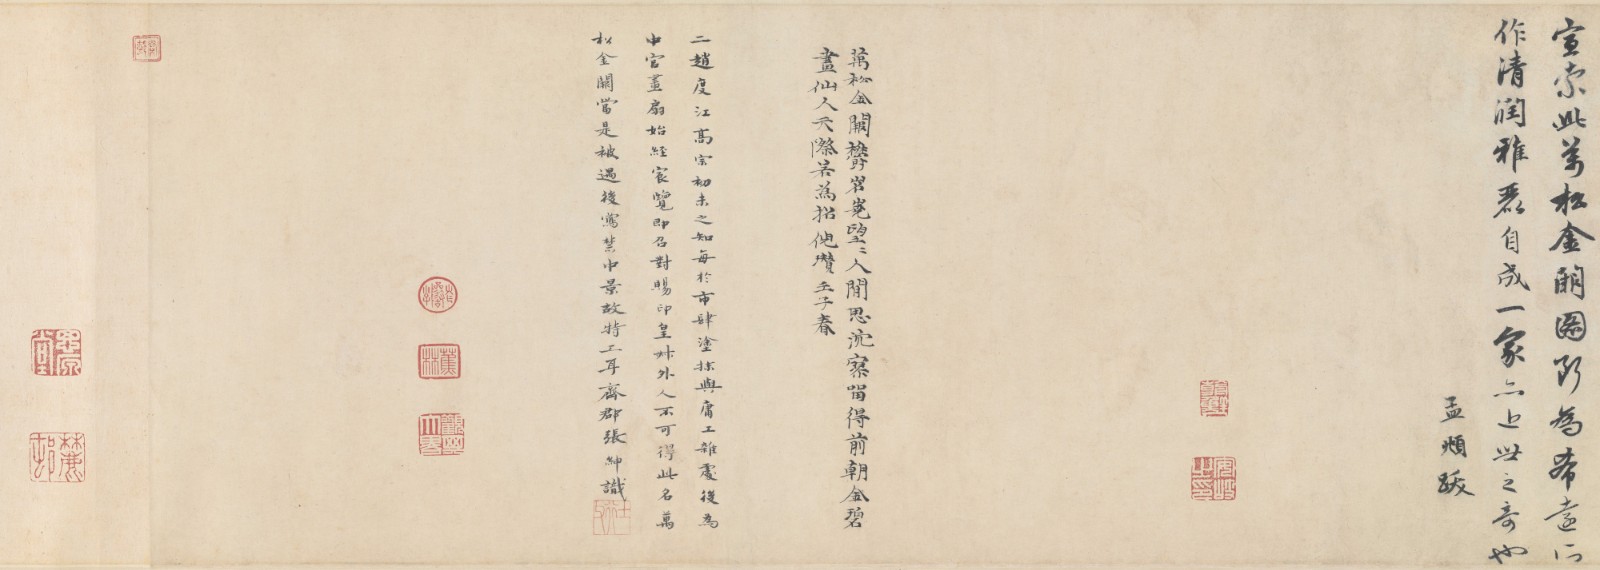 宣索此萬松金闕圖斷為希遠所
作清潤雅麗自成一家亦近世之奇也
孟頫跋
萬松金闕鬱岧嶤望〻人間思泬寥留得前朝金碧
畫仙人天際若為招 倪瓚 壬子春
二趙度江高宗初未之知每於市肆塗抹與庸工雜處後為
中官畫扇始經宸覽即召對賜印皇姊外人不可得此名萬
松金闕當是被遇後寫禁中景故特工耳齊郡張紳識
蕉林
觀其大略